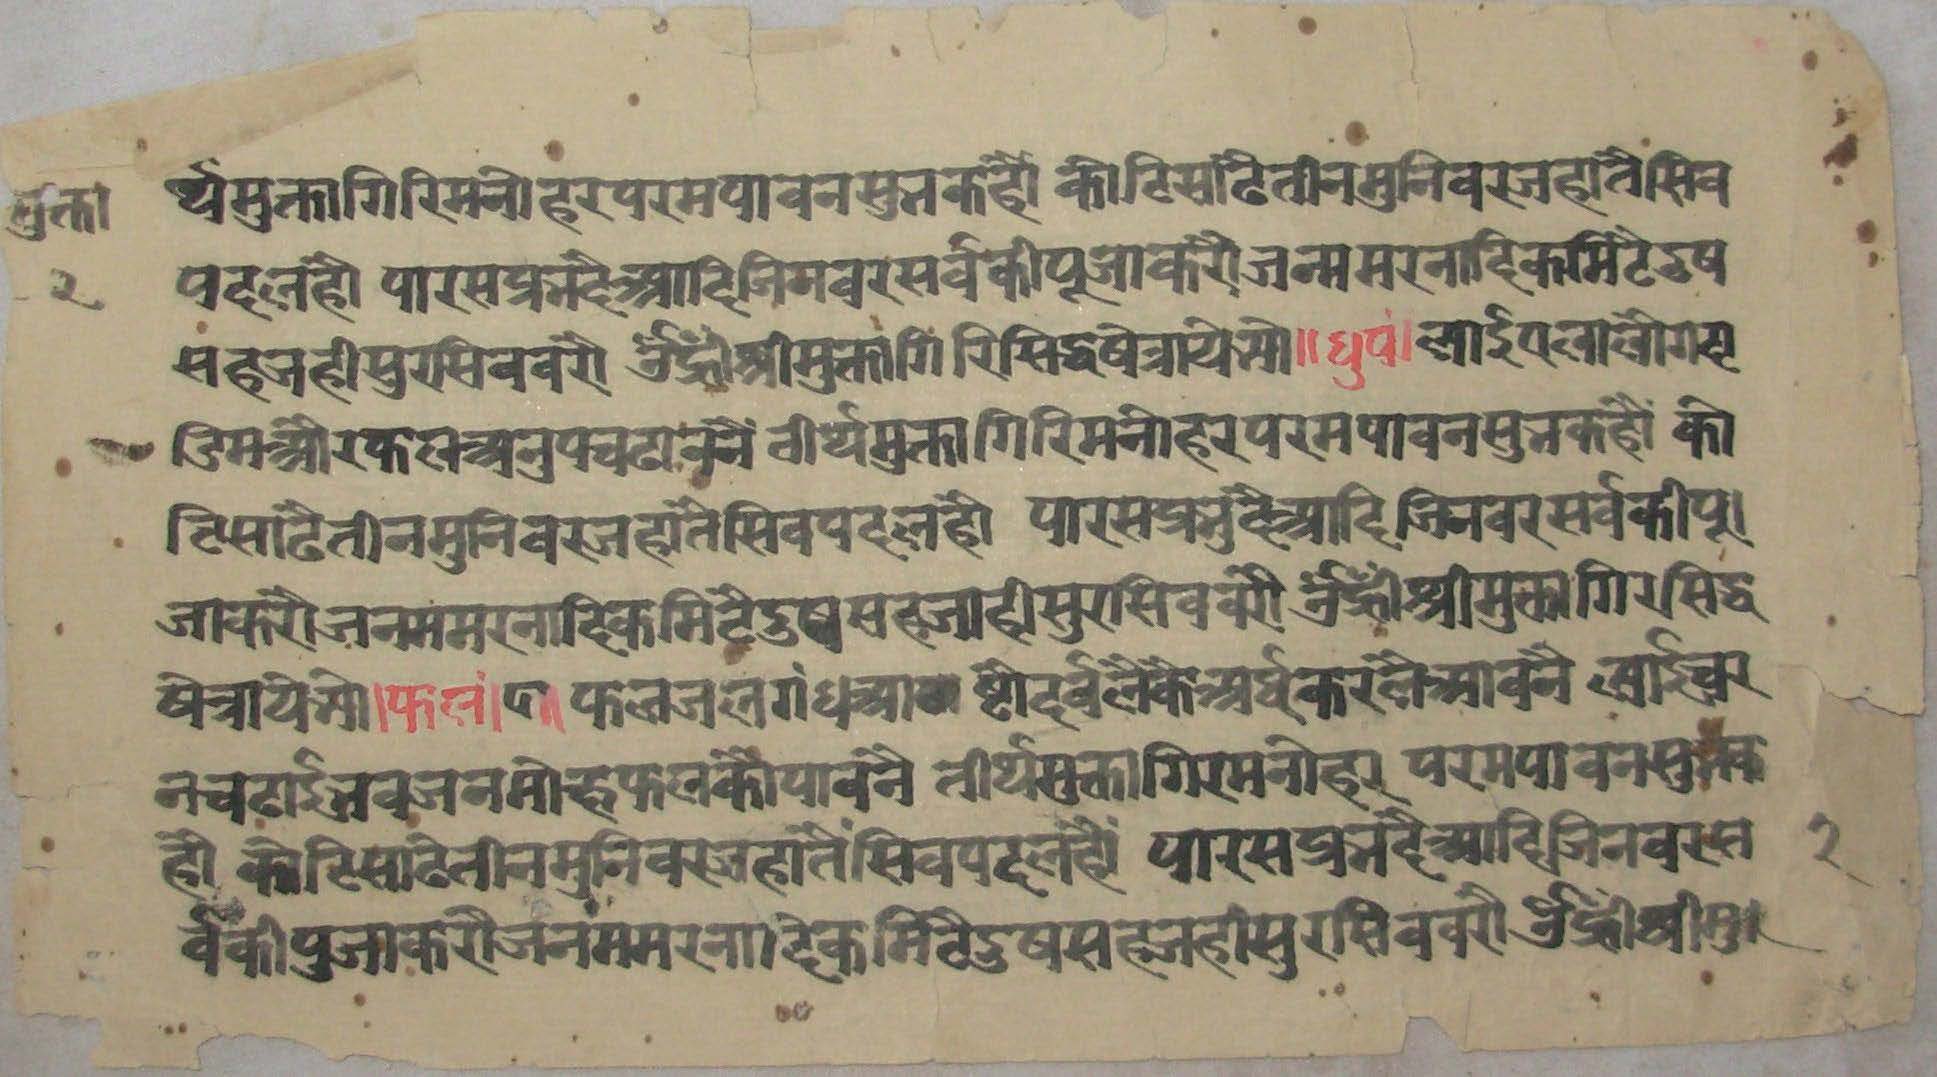 मुक्ता
२
र्थमुक्तागिरिमनोहरपरमपावनसुनकहौं कोटिसाढैतीनमुनिवरजहांतैसिव
पदलहौ पारसप्रभुदैआदिजिनवरसर्वकीपूजाकरौ जन्ममरनादिकमिटैदुष
सहजहीसुरसिववरौ र्नुँह्रींश्रीमुक्तागिरिसिद्धषेत्रायेमो॥धुपं।ल्याई लालौग
डिमऔरफलअनुपचढावनै तीर्थमुक्तागिरिमनोहरपरमपावनसुनकहौं को
टिसाढैतीनमुनिवरजहांतैसिवपदलहौ पारसप्रभुदैआदिजिनवरसर्वकीपू।
जाकरौजनममरनादिकमिटैदुषसहजाहीसुरसिववरौ र्नुँह्रींश्रीमुक्तागिरसिद्ध
षेत्रायेमो।फलं।प॥ फलजलगंध दर्वलैकैअर्घकरलैआवनै
नचढाईभवजनमोह्रफलकौपावनै तीर्थमुक्तागिरमनोहर परमपावनसुनक
हौ कोटिसाढेतीनमुनिवरजहांतैंसिवपदलहौं पारसप्रभुदैआदिजिनवरस
र्वकीपुजाकरौजनंममरनादिकमिटैदुषसहजहीसुरसिववरौ र्नुँह्रींश्रीमु।
२